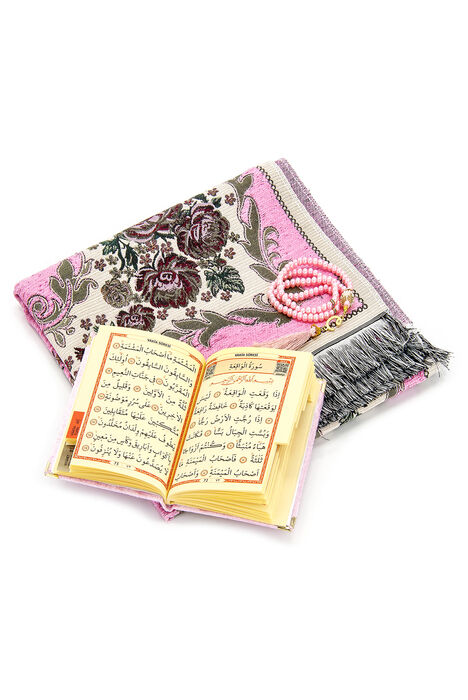 VAKIA SÛRESİ
سُورَةُ الْوَاقِعَةِ
اِذَا وَقَعَتِ الْوَاقِعَةُ لَيْسَ
لِوَقْعَتِهَا كَاذِبَةٌ خَافِضَةٌ رَافِعَةٌ
اِذَا رُجَّتِ الْاَرْضُ رَجًّا
وَبُسَّتِ الْجِبَالُ بَسًّا فَكَانَتْ
هَبَاءً مُنْبَثًّا وَكُنْتُمْ اَزْوَاجًا
ثَلٰثَةً فَاَصْحَابُ الْمَيْمَنَةِ
مَا اَصْحَابُ الْمَيْمَنَةِ وَاَصْحَابُ
VAKIA SÛRESİ
الْمَشْـَٔمَةِ مَا اَصْحَابُ الْمَشْـَٔمَةِ
وَالسَّابِقُونَ السَّابِقُونَ اُولٰئِكَ
الْمُقَرَّبُونَ فِى جَنَّاتِ النَّعِيمِ
ثُلَّةٌ مِنَ الْاَوَّلِينَ وَقَلِيلٌ مِنَ
الْاٰخِرِينَ عَلٰى سُرُرٍ مَوْضُونَةٍ
مُتَّكِئِينَ عَلَيْهَا مُتَقَابِلِينَ
يَطُوفُ عَلَيْهِمْ وِلْدَانٌ مُخَلَّدُونَ
بِاَكْوَابٍ وَاَبَارِيقَ وَكَأْسٍ مِنْ مَعِينٍ
لَا يُصَدَّعُونَ عَنْهَا وَلَا يُنْزِفُونَ